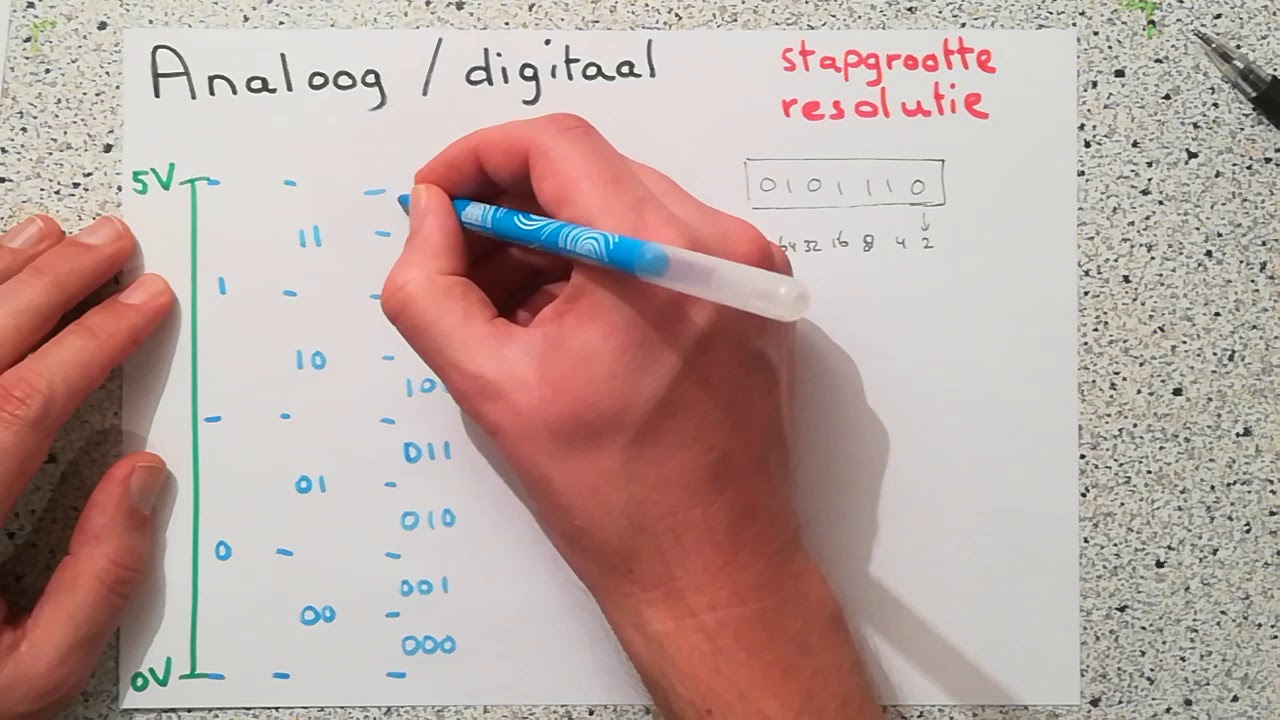 Analoog / digitaal
stapgrootte
resolutie
5V
0101110
11
32 16 8 4 2
1
10
011
01
010
0
001
00
000
0V